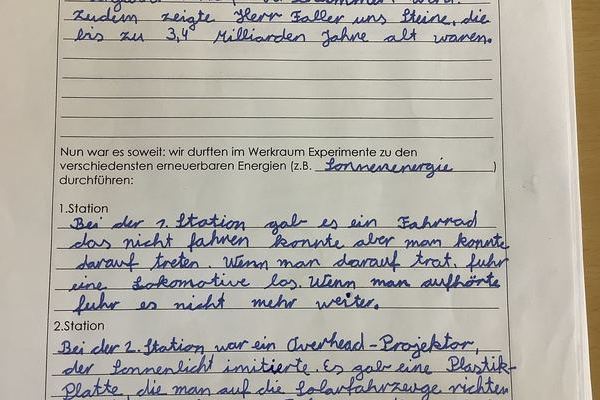 zudem zeigte Herr Faller uns Steine, die
bis zu 3,4 Milliarden Jahre alt waren.
Nun war es soweit: wir durften im Werkraum Experimente zu den
verschiedensten erneuerbaren Energien (z.B. Sonnenenergie )
durchführen:
1.Station
Bei der 1. Station gab es ein Fahrrad
das nicht fahren konnte aber man konnte
darauf treten. Wenn man darauf trat, fuhr
eine Lokomotive los. Wenn man aufhörte
fuhr es nicht mehr weiter.
2.Station
Bei der 2. Station war ein Overhead-Projektor,
der Sonnenlicht imitierte. Es gab eine Plastik-
Platte, die man auf die Solarfahrzeuge richten